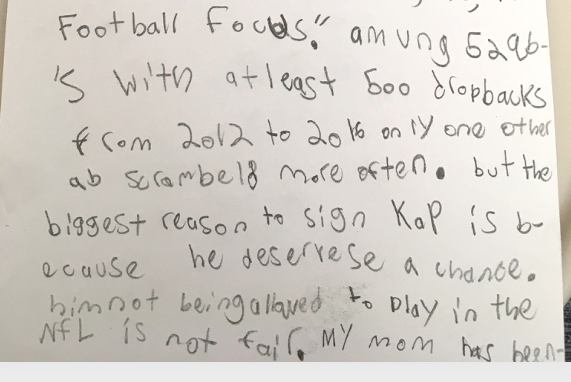 Football Focus." amung 52qb-
's with atleast 500 dropbacks
from 2012 to 2016 only one other
qb scrambel8 more often. but the
biggest reason to sign Kap is b-
ecause he deservese a chance.
him not being allowed to play in the
NFL is not fair. MY mom has been-